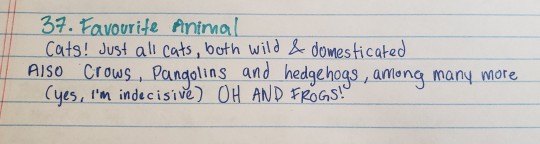 37. Favourite Animal
Cats! Just all cats, both wild & domesticated
Also Crows, Pangolins and hedgehogs, among many more
(yes, I'm indecisive) OH AND FROGS!